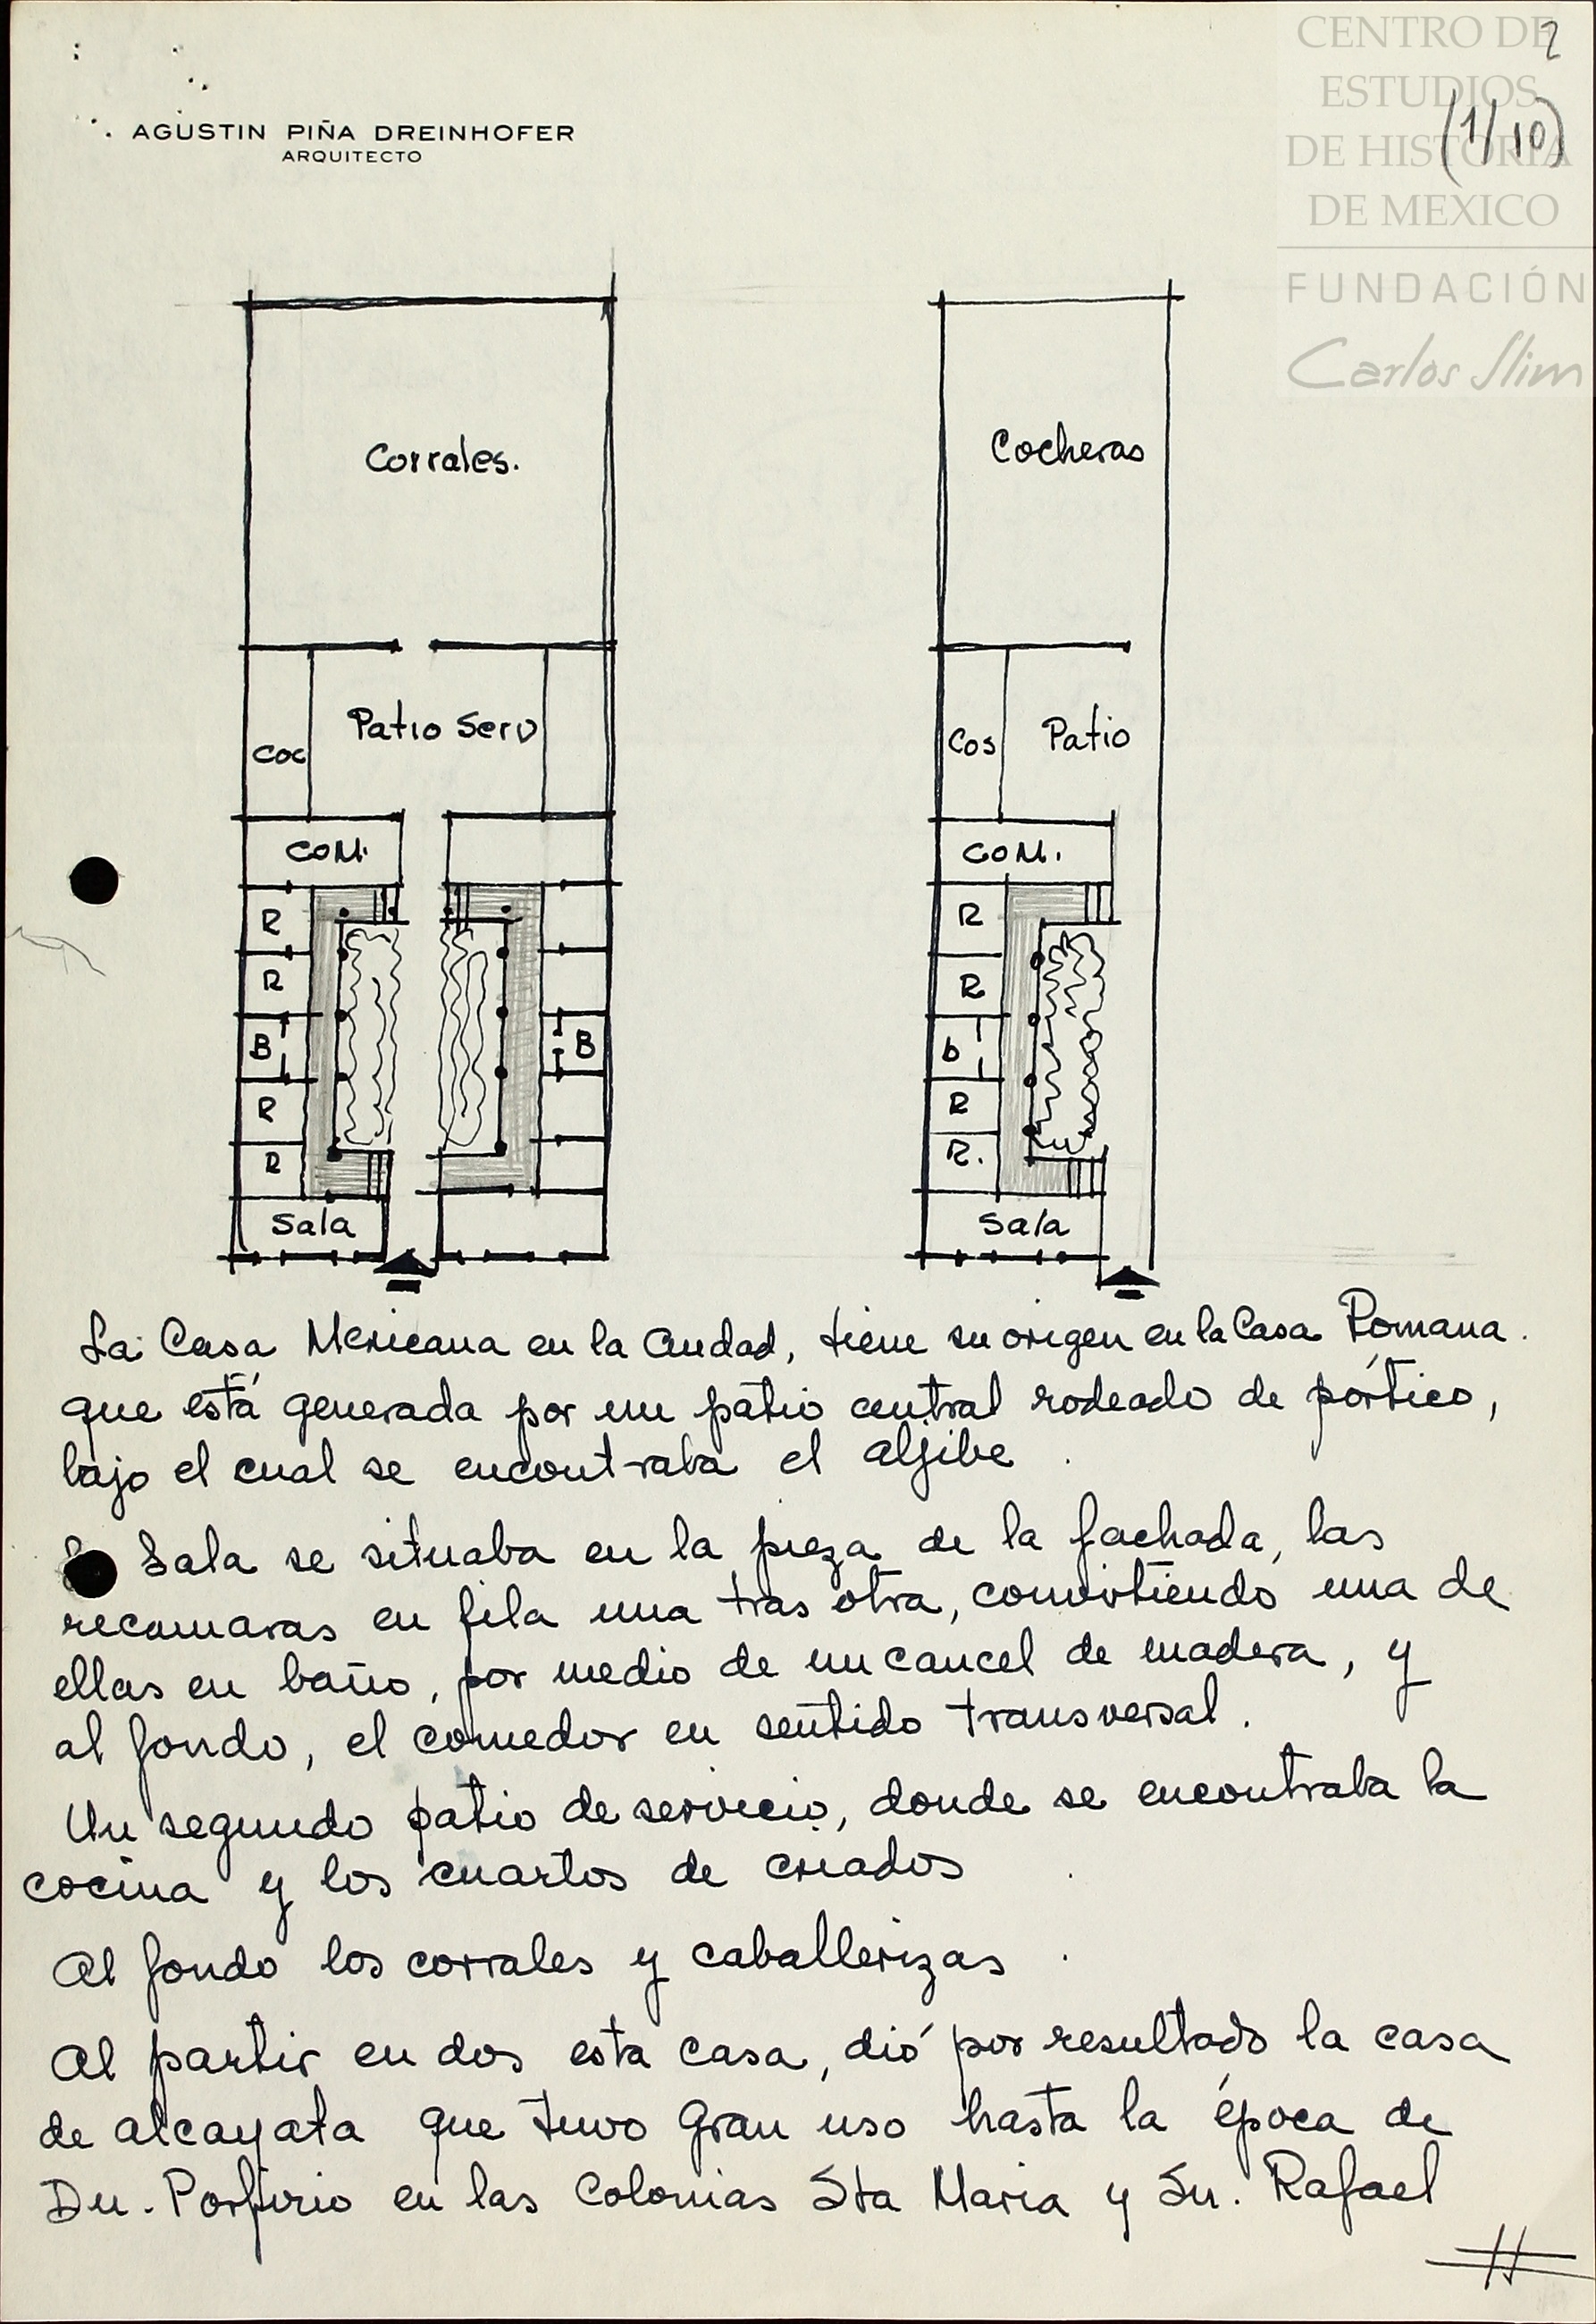 CENTRO DE
ESTUDIOS
DE HISTORIA
DE MEXICO
FUNDACIÓN
Carlos Slim
2
(1/10)
AGUSTIN PIÑA DREINHOFER
ARQUITECTO
Corrales.
Patio Serv
Coc
COM.
R
R
B
B
R
R
Sala
Cocheras
Cos
Patio
COM.
R
R
b
R
R.
Sala
La Casa Mexicana en la Ciudad, tiene su origen en la Casa Romana.
que está generada por un patio central rodeado de pórtico,
bajo el cual se encontraba el aljibe.
Sala se situaba en la pieza de la fachada, las
recamaras en fila una tras otra, convirtiendo una de
ellas en baño, por medio de un cancel de madera, y
al fondo, el comedor en sentido transversal.
Un segundo patio de servicio, donde se encontraba la
cocina y los cuartos de criados.
Al fondo los corrales y caballerizas.
Al partir en dos esta casa, dió por resultado la casa
de alcayata que tuvo gran uso hasta la época de
Dn. Porfirio en las Colonias Sta Maria y Sn. Rafael